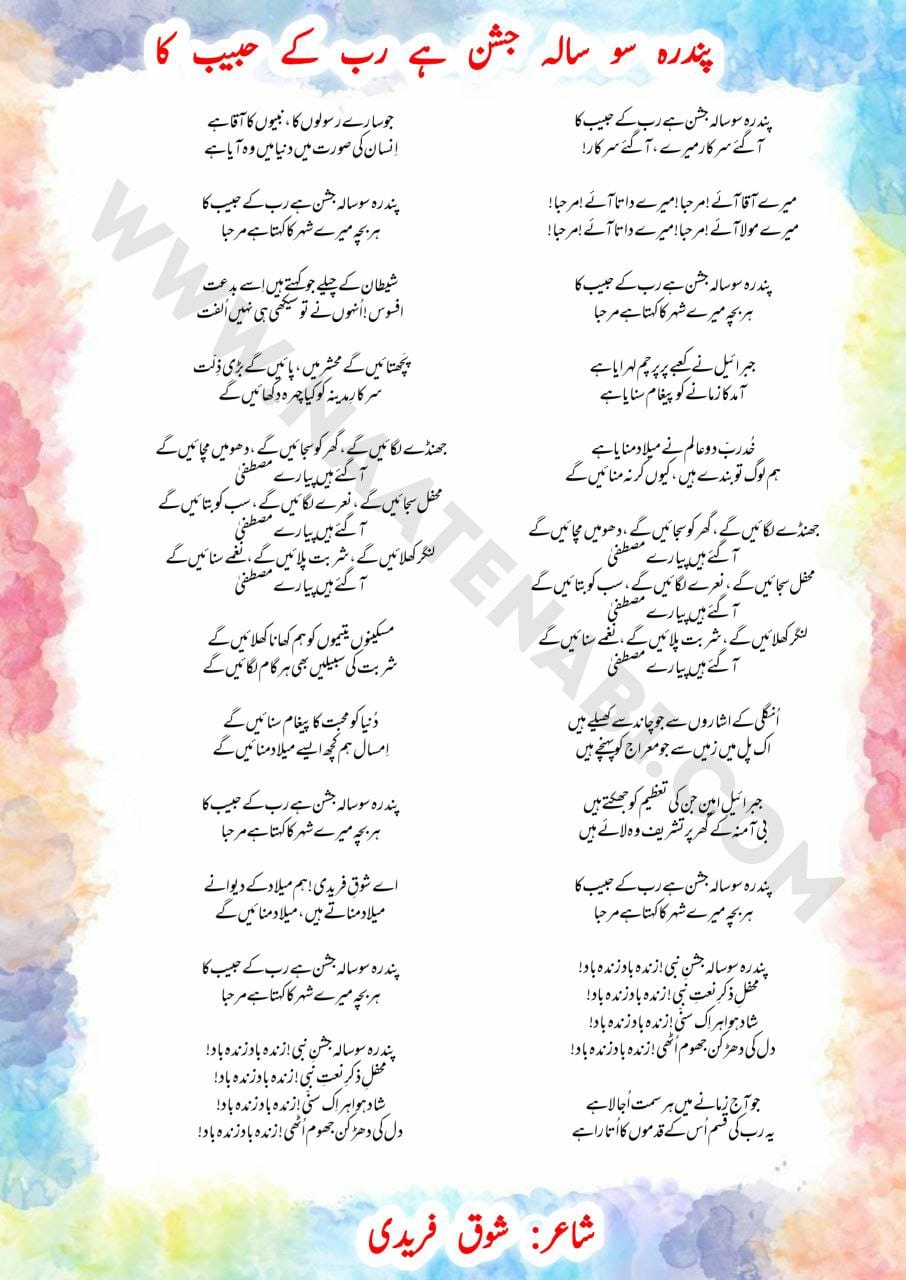 پندرہ سو سالہ جشن ہے رب کے حبیب کا
پندرہ سو سالہ جشن ہے رب کے حبیب کا
آ گئے سرکار میرے، آ گئے سرکار!
میرے آقا آئے! مرحبا! میرے داتا آئے! مرحبا!
میرے مولا آئے! مرحبا! میرے داتا آئے! مرحبا!
پندرہ سو سالہ جشن ہے رب کے حبیب کا
ہر بچہ میرے شہر کا کہتا ہے مرحبا
جبرائیل نے کعبے پر پرچم لہرایا ہے
آمد کا زمانے کو پیغام سنایا ہے
خُد ربِّ دو عالم نے میلاد منایا ہے
ہم لوگ تو بندے ہیں، کیوں کر نہ منائیں گے
جھنڈے لگائیں گے، گھر کو سجائیں گے، دھومیں مچائیں گے
آ گئے ہیں پیارے مصطفیٰ
محفل سجائیں گے، نعرے لگائیں گے، سب کو بتائیں گے
آ گئے ہیں پیارے مصطفیٰ
لنگر کھلائیں گے، شربت پلائیں گے، نغمے سنائیں گے
آ گئے ہیں پیارے مصطفیٰ
اُنگلی کے اشاروں سے جو چاند سے کھیلے ہیں
اک پل میں زمیں سے جو معراج کو پہنچے ہیں
جبرائیل امین جن کی تعظیم کو جھکتے ہیں
بی آمنہ کے گھر پر تشریف وہ لائے ہیں
پندرہ سو سالہ جشن ہے رب کے حبیب کا
ہر بچہ میرے شہر کا کہتا ہے مرحبا
پندرہ سو سالہ جشنِ نبی! زندہ باد زندہ باد!
محفلِ ذکرِ نعتِ نبی! زندہ باد زندہ باد!
شاد ہوا ہر اِک سنّی! زندہ باد زندہ باد!
دل کی دھڑکن جھوم اُٹھی! زندہ باد زندہ باد!
جو آج زمانے میں ہر سمت اُجالا ہے
یہ رب کی قسم اُس کے قدموں کا اُتارا ہے
جو سارے رسولوں کا، نبیوں کا آقا ہے
اِنسان کی صورت میں دنیا میں وہ آیا ہے
پندرہ سو سالہ جشن ہے رب کے حبیب کا
ہر بچہ میرے شہر کا کہتا ہے مرحبا
شیطان کے چیلے جو کہتے ہیں اِسے بدعت
افسوس! اُنہوں نے تو سیکھی ہی نہیں اُلفت
پچھتائیں گے محشر میں، پائیں گے بڑی ذِلّت
سرکارِ مدینہ کو کیا چہرہ دکھائیں گے
جھنڈے لگائیں گے، گھر کو سجائیں گے، دھومیں مچائیں گے
آ گئے ہیں پیارے مصطفیٰ
محفل سجائیں گے، نعرے لگائیں گے، سب کو بتائیں گے
آ گئے ہیں پیارے مصطفیٰ
لنگر کھلائیں گے، شربت پلائیں گے، نغمے سنائیں گے
آ گئے ہیں پیارے مصطفیٰ
مسکینوں یتیموں کو ہم کھانا کھلائیں گے
شربت کی سبیلیں بھی ہر گام لگائیں گے
دُنیا کو محبت کا پیغام سنائیں گے
اِمسال ہم کچھ ایسے میلاد منائیں گے
پندرہ سو سالہ جشن ہے رب کے حبیب کا
ہر بچہ میرے شہر کا کہتا ہے مرحبا
اے شوقِ فریدی! ہم میلاد کے دیوانے
میلاد مناتے ہیں، میلاد منائیں گے
پندرہ سو سالہ جشن ہے رب کے حبیب کا
ہر بچہ میرے شہر کا کہتا ہے مرحبا
پندرہ سو سالہ جشنِ نبی! زندہ باد زندہ باد!
محفلِ ذکرِ نعتِ نبی! زندہ باد زندہ باد!
شاد ہوا ہر اِک سنّی! زندہ باد زندہ باد!
دل کی دھڑکن جھوم اُٹھی! زندہ باد زندہ باد!
شاعر: شوق فریدی
WWW.NAATENABI.COM